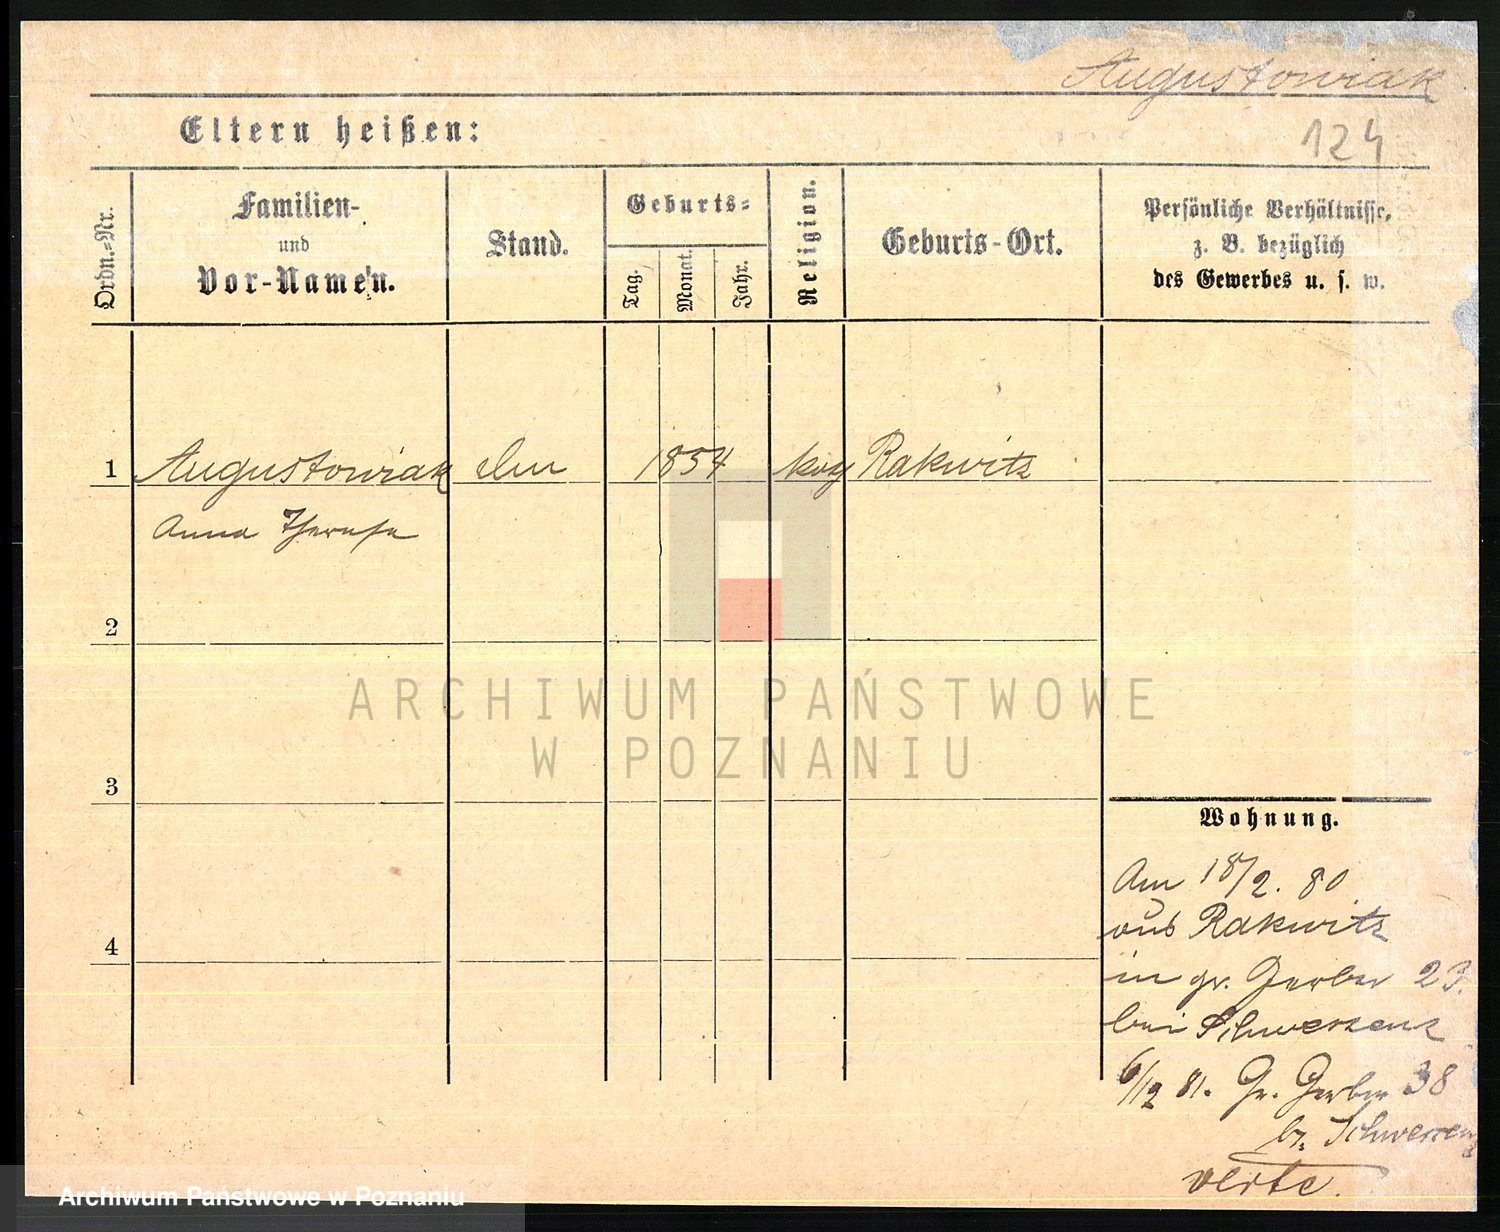 Augustowiak
124
Eltern heißen:
Ordn.=Nr.
Familien-
und
Vor-Namen.
Stand.
Geburts=
Tag.
Monat.
Jahr.
Religion.
Geburts-Ort.
Persönliche Verhältnisse,
z. B. bezüglich
des Gewerbes u. s. w.
1 Augustowiak 1854 Rakwitz
Anna Theresa
2
3
4
ARCHIWUM PAŃSTWOWE
W POZNANIU
Wohnung.
Am 18/2. 80
aus Rakwitz
in gr. Gerber 23.
bei Schwersenz
6/12 81. Gr. Gerber 38
b. Schwersenz
verte.
Archiwum Państwowe w Poznaniu